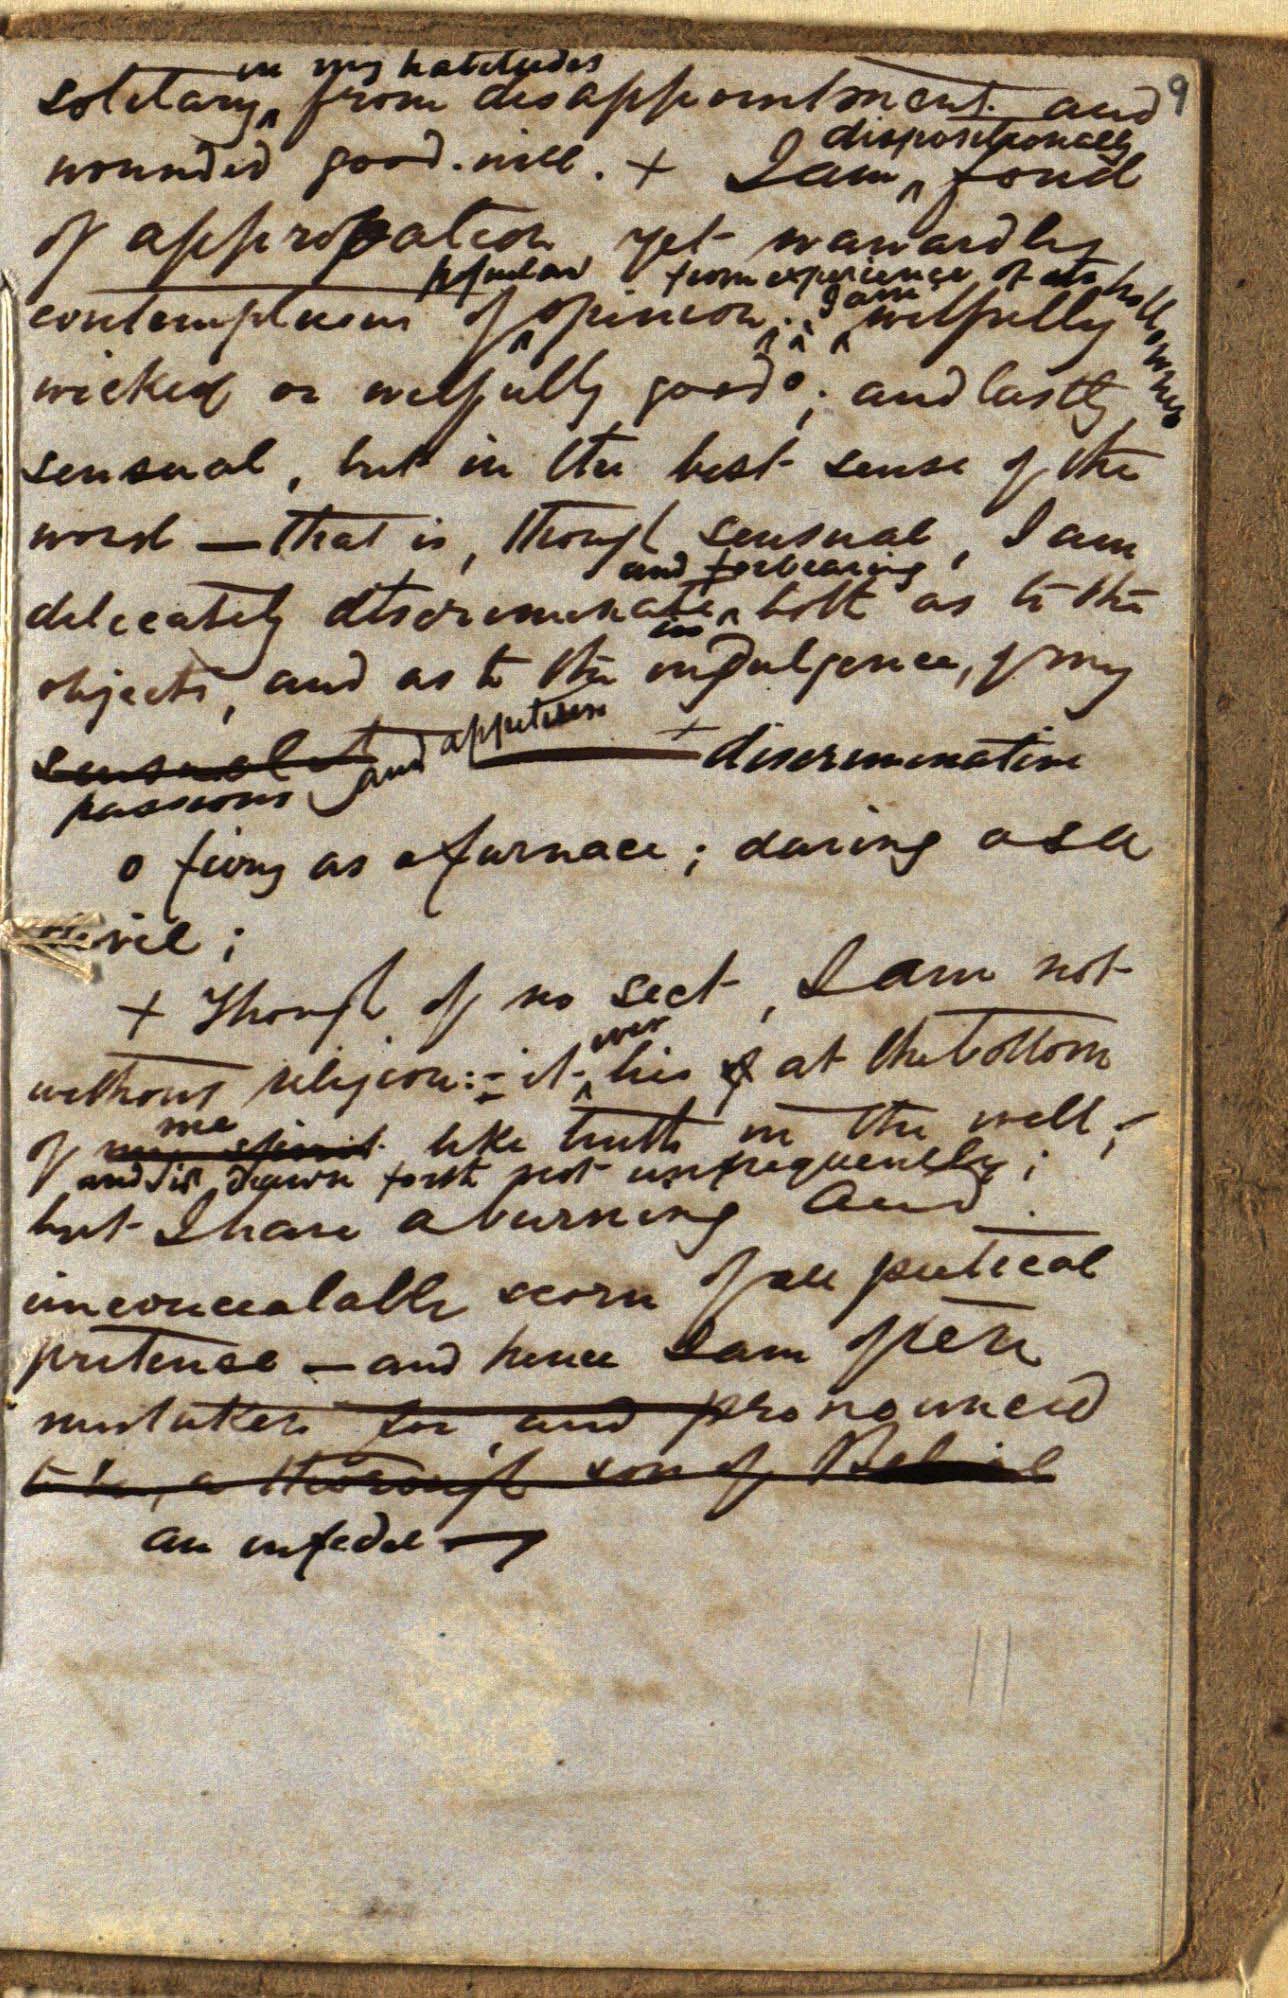 9
in my habitudes
solitary ‸ from disappointment and
dispositionally
wounded good-will. + I am ‸ fond
of approbation yet wawardly
popular from experience of its hollowness
contemptuous of ‸ opinion. I am wilfully
wicked or wilfully good o; and lastly
sensual, but in the best sense of the
word — that is, though sensual, I am
and forbearing
delicately discriminate ‸ both as to the
objects, and as to the indulgence, of my
sensualit and appetites
passions + discriminative
o firey as a furnace; daring as a
devil;
+ Though of no sect, I am not
ever
without religion: – it ‸ lies at the bottom
me
of my spirit like truth in the well;
and is drawn forth not unfrequently;
but I have a burning and
unconcealable scorn of all pietical
pretense — and hence I am often
mistaken for, and pronounced
to be, a thorough son of Belial
an infidel —